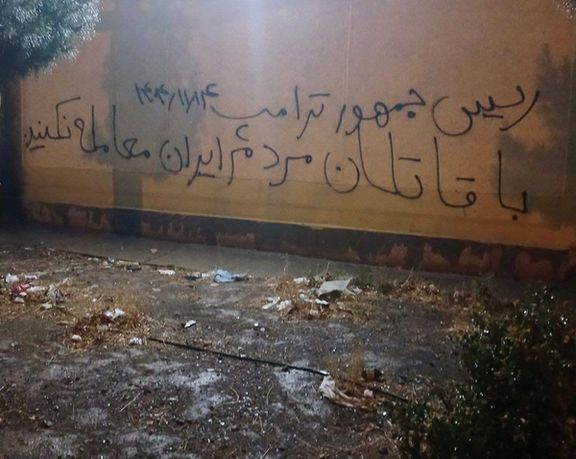 رییس جمهور ترامپ ۱۴۰۴/۱۱/۱۴
با قاتلان مردم ایران معامله نکنین